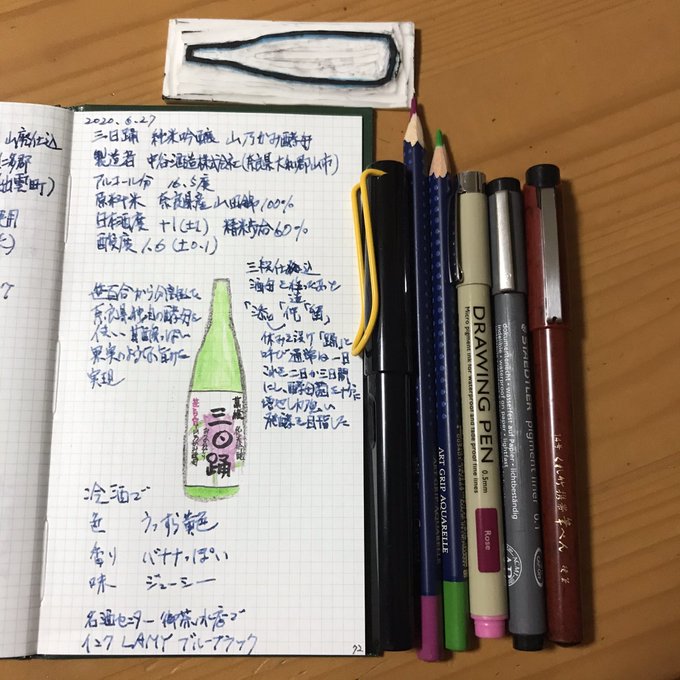 山廃仕込
2020.6.27
三日踊 純米吟醸 山乃かみ酵母
製造者 中谷酒造株式会社(奈良県大和郡山市)
アルコール分 16.5度
原料米 奈良県産 山田錦100%
日本酒度 +1(±1) 精米歩合60%
酸度 1.6(±0.1)
笹百合から分離した
奈良県独自の酵母に
果実のような
実現
三段仕込
「添」「仲」「留」
休みを設け「踊」と
呼び通常は一日
これを二日か三日間
にし酵母菌を十分に
発酵を目指した
三日踊
冷酒で
色 うっすら黄色
香り バナナっぽい
味 ジューシー
名酒センター 御茶ノ水店で
インク LAMY ブルーブラック
72
ART GRIP AQUARELLE
DRAWING PEN
Micro pigment ink for waterproof and fade proof fine lines
0.5mm
Rose
STAEDTLER pigment liner 0.1
dokumentenecht • wasserfest auf Papier • lichtbeständig
indelible • waterproof on paper • lightfast
くれ竹携帯筆ぺん